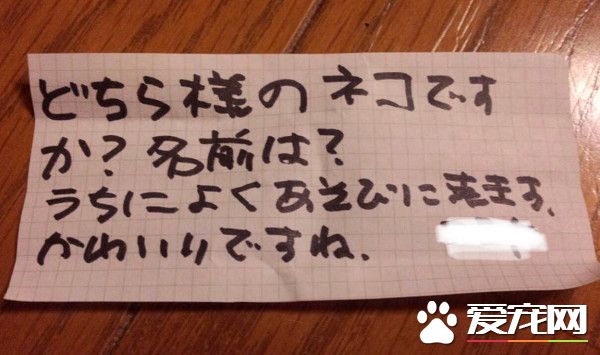 どちら様のネコです
か？名前は？
うちによくあそびに来ます、
かわいいですね、
爱宠网